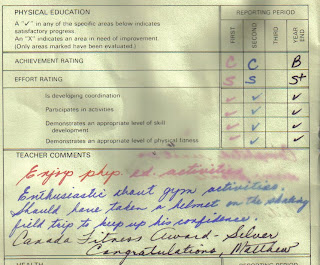 PHYSICAL EDUCATION
REPORTING PERIOD
A "✓" in any of the specific areas below indicates
satisfactory progress.
An "X" indicates an area in need of improvement.
(Only areas marked have been evaluated.)
FIRST SECOND THIRD YEAR END
ACHIEVEMENT RATING C C B
EFFORT RATING S S S+
Is developing coordination ✓ ✓ ✓
Participates in activities ✓ ✓ ✓
Demonstrates an appropriate level of skill
development ✓ ✓ ✓
Demonstrates an appropriate level of physical fitness ✓ ✓ ✓
TEACHER COMMENTS
Enjoy phys. ed. activities
Enthusiastic about gym activities.
Should have taken a helmet on the skating
field trip to keep up his confidence.
Canada Fitness Award - Silver
Congratulations, Matthew
HEALTH
REPORTING PERIOD